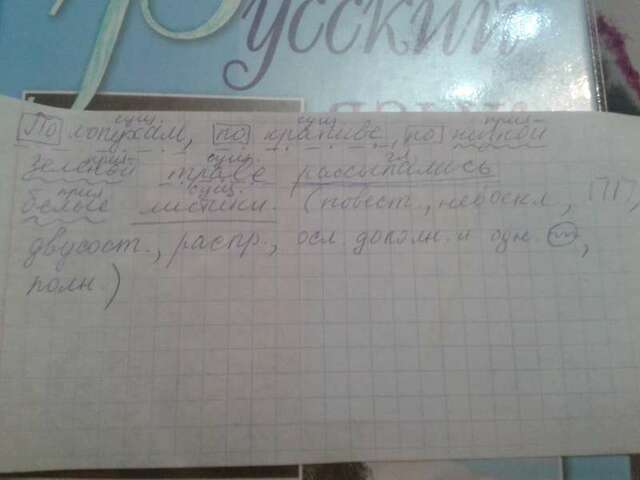 Русский
сущ. сущ. прил.
По лопухам, по крапиве, по всякой
прил. сущ. гл.
зеленой траве рассыпались
прил. сущ.
белые листики. (повест., невоскл.,
двусост., распр., осл. дополн. и одн.
полн.)